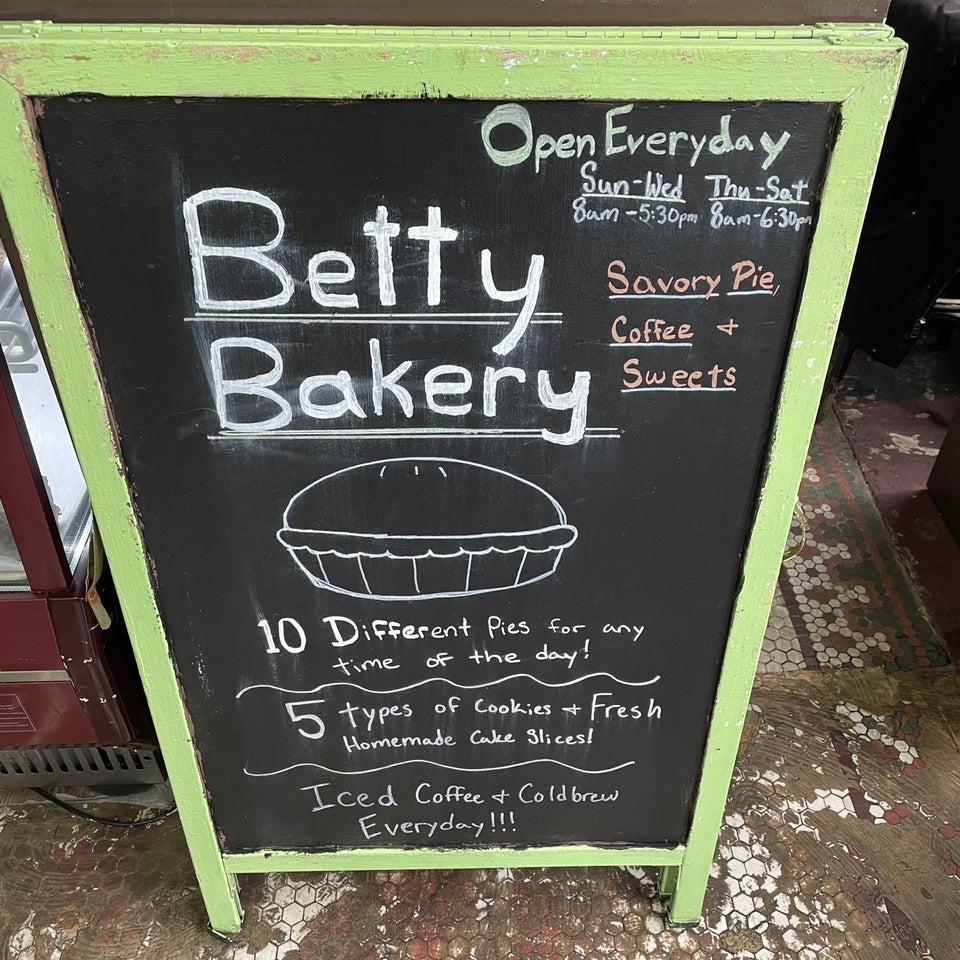 Open Everyday
Sun-Wed Thu-Sat
8am-5:30pm 8am-6:30pm
Betty
Bakery
Savory Pie,
Coffee +
Sweets
10 Different Pies for any
time of the day!
5 types of Cookies + Fresh
Homemade Cake Slices!
Iced Coffee + Coldbrew
Everyday!!!